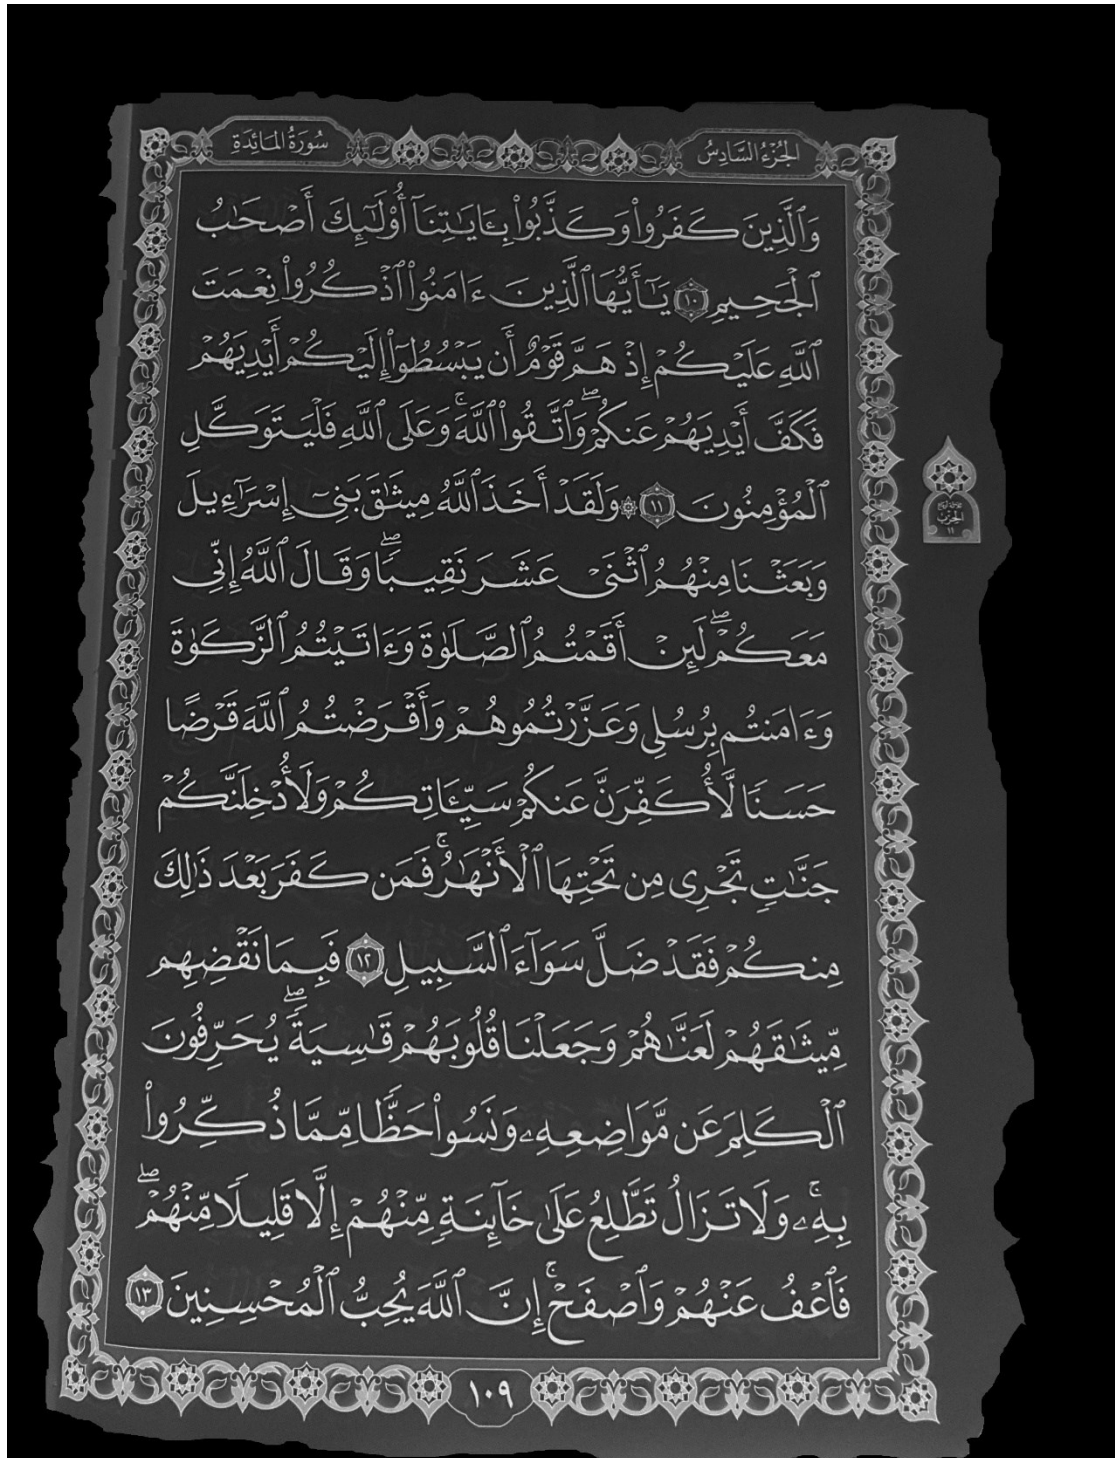 الجزء السادس
سورة المائدة
وَٱلَّذِينَ كَفَرُواْ وَكَذَّبُواْ بِـَٔايَٰتِنَآ أُوْلَٰٓئِكَ أَصْحَٰبُ
ٱلْجَحِيمِ ١٠ يَٰٓأَيُّهَا ٱلَّذِينَ ءَامَنُواْ ٱذْكُرُواْ نِعْمَتَ
ٱللَّهِ عَلَيْكُمْ إِذْ هَمَّ قَوْمٌ أَن يَبْسُطُوٓاْ إِلَيْكُمْ أَيْدِيَهُمْ
فَكَفَّ أَيْدِيَهُمْ عَنكُمْ ۖ وَٱتَّقُواْ ٱللَّهَ ۚ وَعَلَى ٱللَّهِ فَلْيَتَوَكَّلِ
ٱلْمُؤْمِنُونَ ١١ ۞ وَلَقَدْ أَخَذَ ٱللَّهُ مِيثَٰقَ بَنِىٓ إِسْرَٰٓءِيلَ
وَبَعَثْنَا مِنْهُمُ ٱثْنَىْ عَشَرَ نَقِيبًا ۖ وَقَالَ ٱللَّهُ إِنِّى
مَعَكُمْ ۖ لَئِنْ أَقَمْتُمُ ٱلصَّلَوٰةَ وَءَاتَيْتُمُ ٱلزَّكَوٰةَ
وَءَامَنتُم بِرُسُلِى وَعَزَّرْتُمُوهُمْ وَأَقْرَضْتُمُ ٱللَّهَ قَرْضًا
حَسَنًا لَّأُكَفِّرَنَّ عَنكُمْ سَيِّـَٔاتِكُمْ وَلَأُدْخِلَنَّكُمْ
جَنَّٰتٍ تَجْرِى مِن تَحْتِهَا ٱلْأَنْهَٰرُ ۚ فَمَن كَفَرَ بَعْدَ ذَٰلِكَ
مِنكُمْ فَقَدْ ضَلَّ سَوَآءَ ٱلسَّبِيلِ ١٢ فَبِمَا نَقْضِهِم
مِّيثَٰقَهُمْ لَعَنَّٰهُمْ وَجَعَلْنَا قُلُوبَهُمْ قَٰسِيَةً ۖ يُحَرِّفُونَ
ٱلْكَلِمَ عَن مَّوَاضِعِهِۦ وَنَسُواْ حَظًّا مِّمَّا ذُكِّرُواْ
بِهِۦ ۚ وَلَا تَزَالُ تَطَّلِعُ عَلَىٰ خَآئِنَةٍ مِّنْهُمْ إِلَّا قَلِيلًا مِّنْهُمْ ۖ
فَٱعْفُ عَنْهُمْ وَٱصْفَحْ ۚ إِنَّ ٱللَّهَ يُحِبُّ ٱلْمُحْسِنِينَ ١٣
الحزب
١١
١٠٩